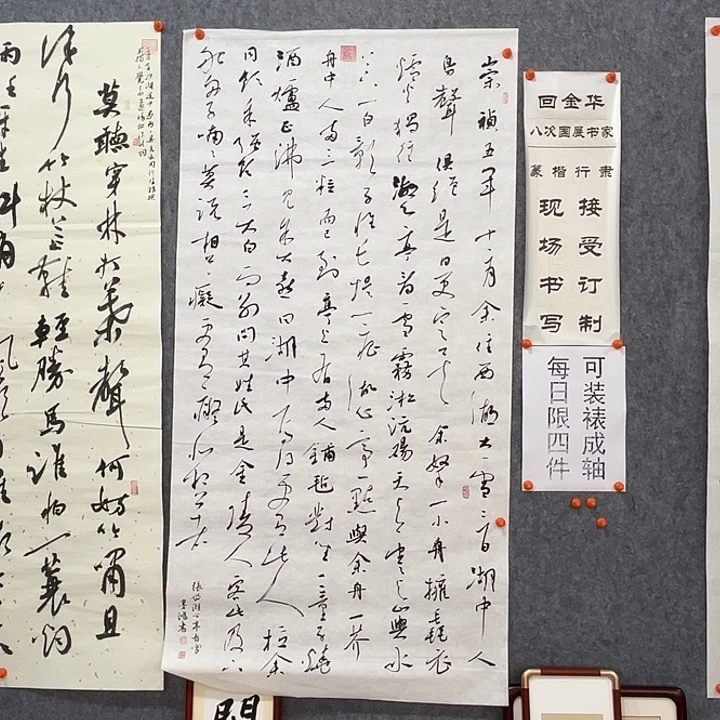 崇禎五年十二月余住西湖大雪三日湖中人
鳥聲俱絕是日更定矣余拏一小舟擁毳衣
爐火獨往湖心亭看雪霧凇沆碭天與雲與山與水
上下一白影子惟長堤一痕湖心亭一點與余舟一芥
舟中人兩三粒而已到亭上有兩人鋪氈對坐一童子燒
酒爐正沸見余大喜曰湖中焉得更有此人拉余
同飲余強飲三大白而別問其姓氏是金陵人客此及下
船舟子喃喃曰莫說相公癡更有癡似相公者
張岱湖心亭看雪
莫聽穿林打葉聲何妨吟嘯且
徐行竹杖芒鞋輕勝馬誰怕一蓑煙
雨任平生料峭
回金华
八次国展书家
篆楷行隶
接受订制
现场书写
可装裱成轴
每日限四件